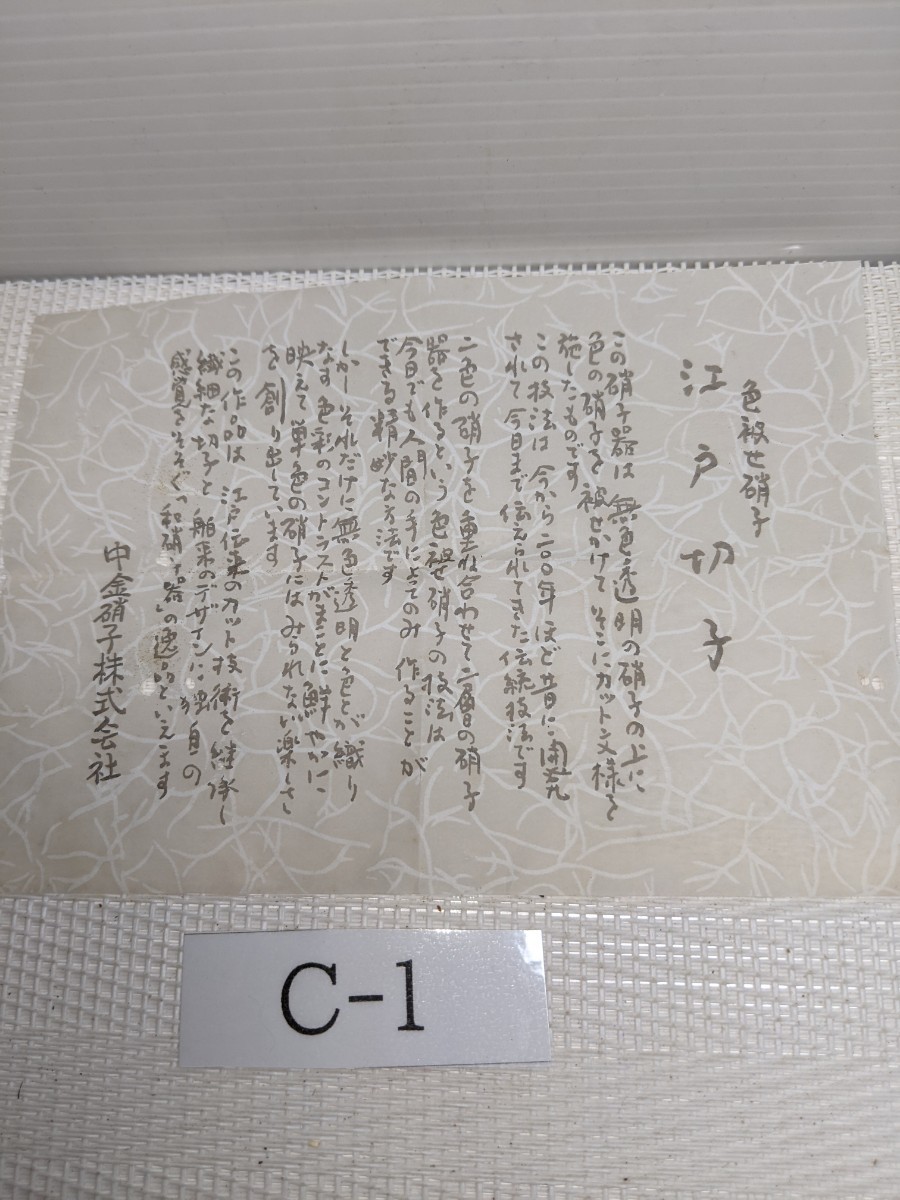 色被せ硝子
江戸切子
この硝子器は 無色透明の硝子の上に
色の硝子を被せかけて そこにカット文様を
施したものです
この技法は 今から二〇〇年ほど昔に開発
されて 今日まで伝えられてきた伝統技法です
二色の硝子を重ね合わせて二層の硝子
器を作るという 色被せ硝子の技法は
今日でも人間の手によってのみ 作ることが
できる精妙な方法です
しかしそれだけに無色透明と色とが織り
なす色彩のコントラストがまことに鮮やかに
映えて 単色の硝子にはみられない楽しさ
を 創り出しています
この作品は 江戸伝来のカット技術を継承し
繊細な切子と 舶来のデザインに独自の
感覚をそそぐ「和硝子器」の逸品といえます
中金硝子株式会社
C-1